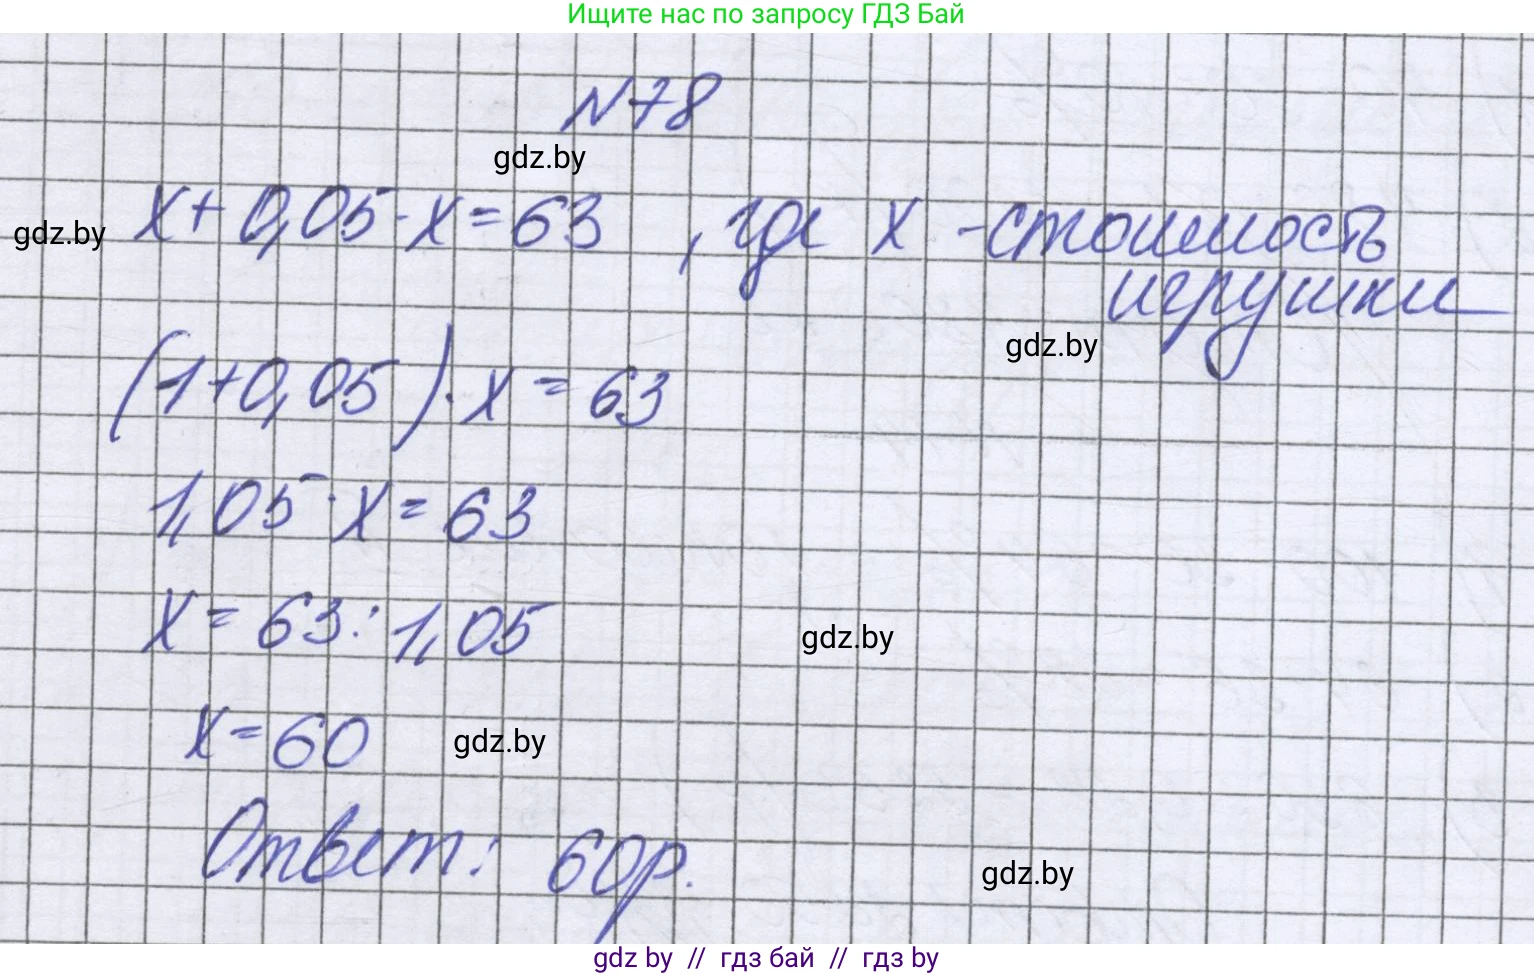 Ищите нас по запросу ГДЗ Бай
N78
gdz.by
gdz.by
x + 0,05 · x = 63 , где x - стоимость
игрушки
gdz.by
(1+0,05) · x = 63
1,05 · x = 63
x = 63 : 1,05
gdz.by
x = 60
gdz.by
Ответ: 60р.
gdz.by
gdz by // гдз бай // гдз by